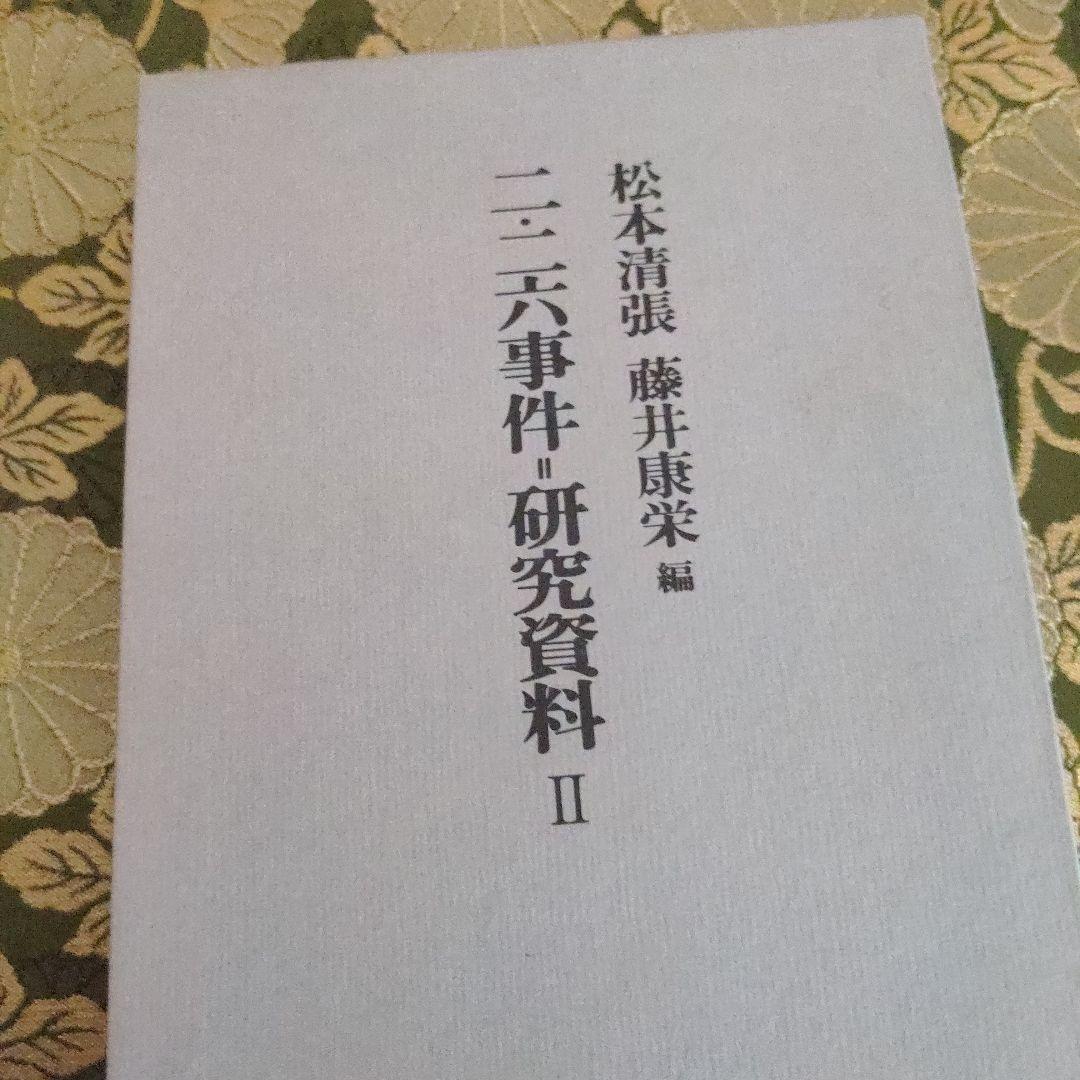 松本清張 藤井康栄 編
二・二六事件＝研究資料 Ⅱ